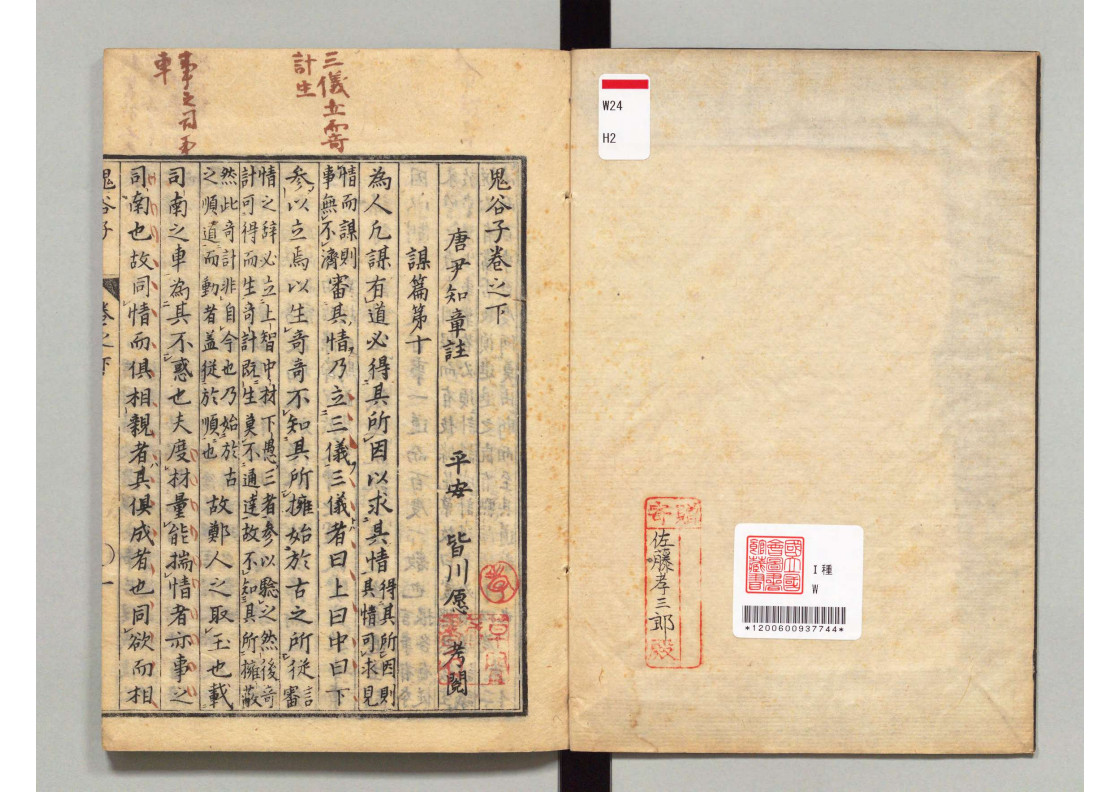 W24
H2
寄贈
佐藤孝三郎
殿
國立國
會圖書
館藏書
I種
W
*1200600937744*
三儀立而奇
計生
事之司南
車
鬼谷子卷之下
唐尹知章註 平安 皆川愿 考閲
謀篇第十
為人凡謀有道必得其所因以求其情得其所因則其情可求見
情而謀則事無不濟審其情乃立三儀三儀者曰上曰中曰下
參以立焉以生奇奇不知其所擁始於古之所從言審
情之辞必立上智中材下愚三者參以驗之然後奇
計可得而生奇計既生莫不通達故不知其所擁蔽
然此奇計非自今也乃始於古
之順道而動者蓋從於順也故鄭人之取玉也載
司南之車為其不惑也夫度材量能揣情者亦事之
司南也故同情而俱相親者其俱成者也同欲而相
鬼谷子 卷之下 一